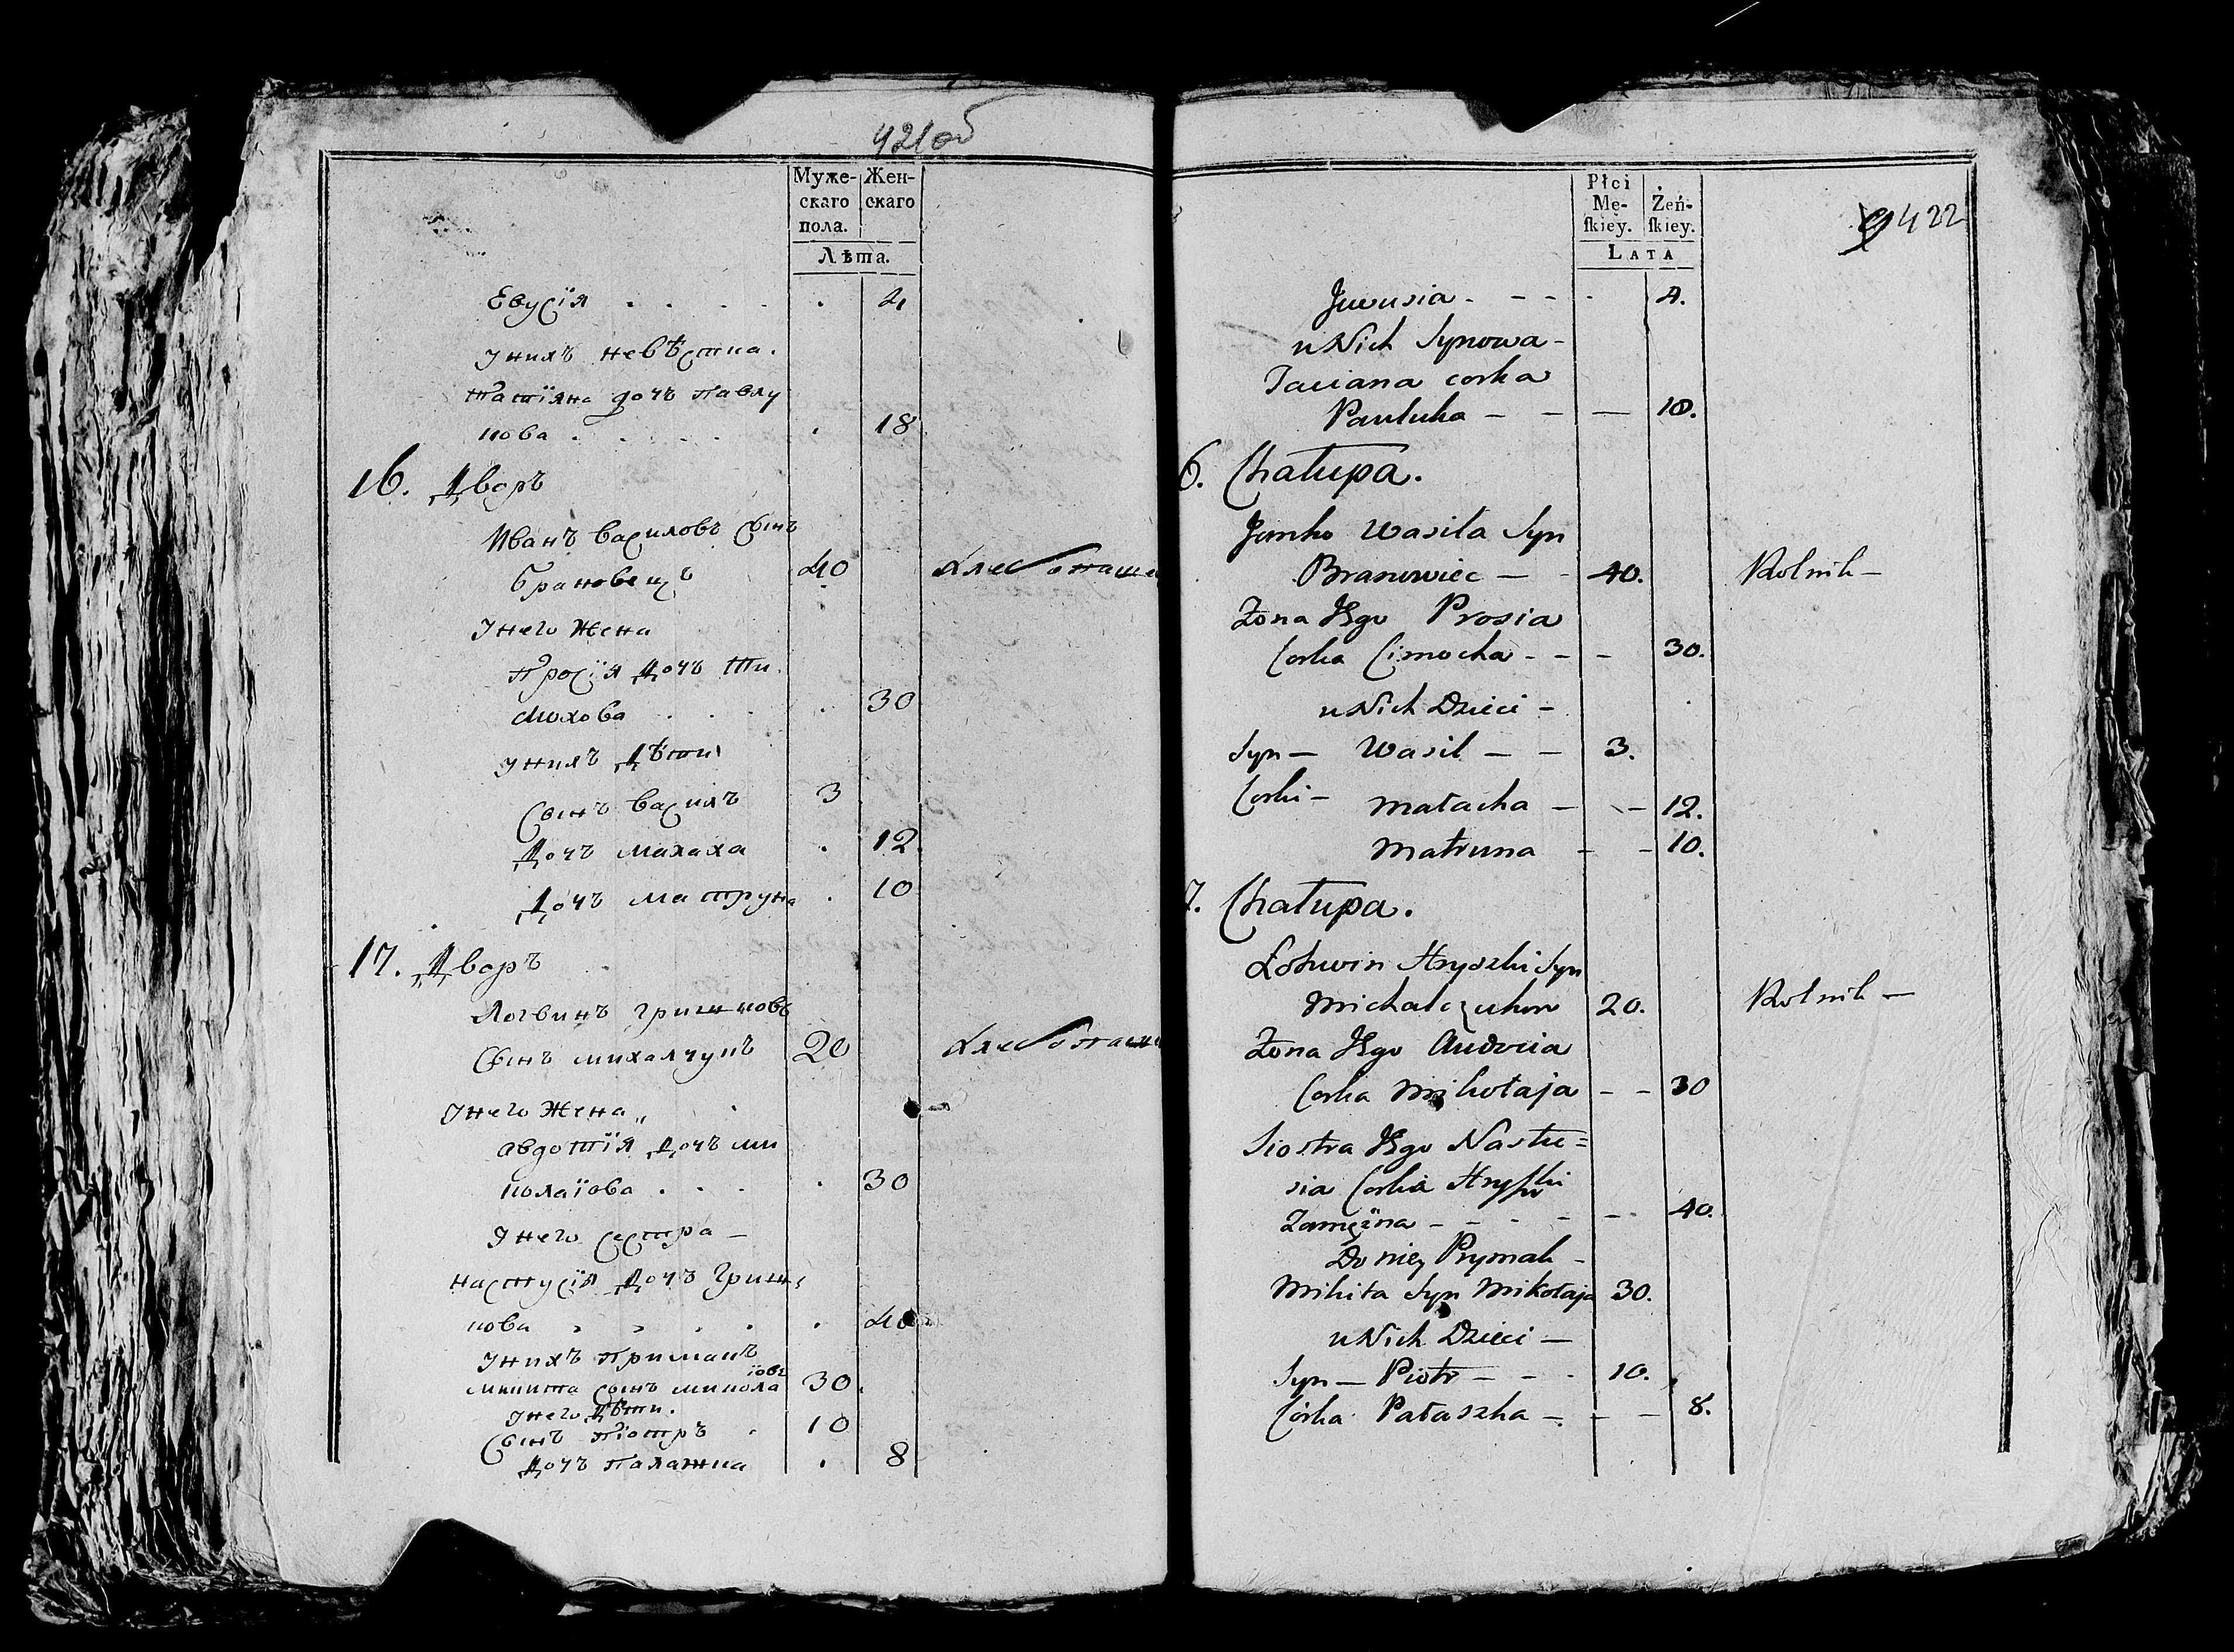 421об
Муже-
скаго
пола.
Жен-
скаго
Лѣта.
Евусія . . . . . 4
Уних невѣстка.
Татіяна дочъ Павлу
кова . . . . . . 18
16. Дворъ
Иванъ Василовъ Сынъ
Брановецъ 40
Унего Жена
Просія Дочъ Ти
мохова . . . . 30
Унихъ Дѣти
Сынъ Василъ 3
Дочъ Малаха . 12
Дочъ Матруна . 10
17. Дворъ
Логвинъ Гришковъ
Сынъ Михалчукъ 20
Унего Жена
Авдотія Дочъ Ми
колаіова . . . . 30
Унего Сестра –
Настусія Дочъ Гриш
кова . . . . . 40
Унихъ Примакъ
Микита Сынъ Микола іовъ 30.
Унего Дѣти.
Сынъ Піотръ . 10
Дочъ Палажка . 8
Płci
Mę-
ſkiey.
Żeń-
ſkiey.
LATA
422
Juwusia - - - - 4.
u Nich Synowa -
Taciana corka
Pauluka - - - 18.
6. Chałupa.
Jwanko Wasila Syn
Branowiec - - 40. Rolnik -
Żona Jego Prosia
Corka Cimocha - - - 30.
u Nich Dzieci -
Syn - Wasil - - 3.
Corki - Małacha - - 12.
Matruna - - 10.
7. Chałupa.
Łohwin Hryszki Syn
Michalczukow 20. Rolnik -
Żona Jego Audocia
Corka Mikołaja - - 30
Siostra Jego Nastu=
sia Corka Hryſzki
Zamężna - - - - - 40.
Do niey Prymak -
Mikita Syn Mikołaja 30.
u Nich Dzieci -
Syn - Piotr - - - 10.
Córka Pałaszka - - - 8.